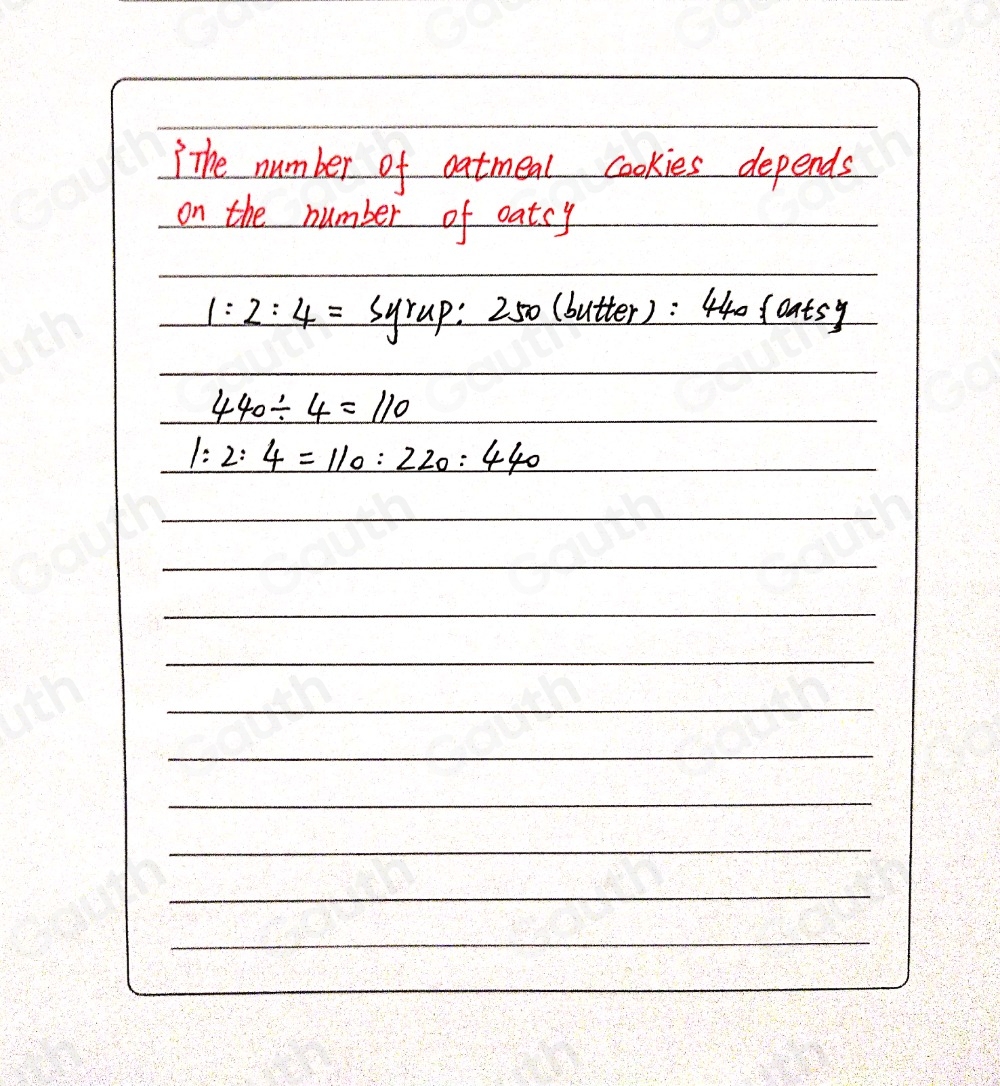 {The number of oatmeal cookies depends
on the number of oats}
1:2:4 = syrup: 250 (butter): 440 {oats}
440÷4=110
1:2:4=110:220:440